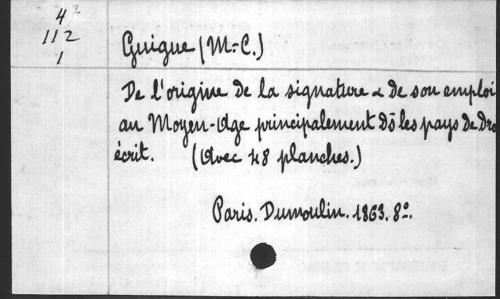 4²
112
1
Guigue (M.-C.)
De l'origine de la signature & de son emploi
au Moyen-Age principalement ds les pays de Dro
écrit. (Avec 48 planches.)
Paris. Dumoulin. 1863. 8º.